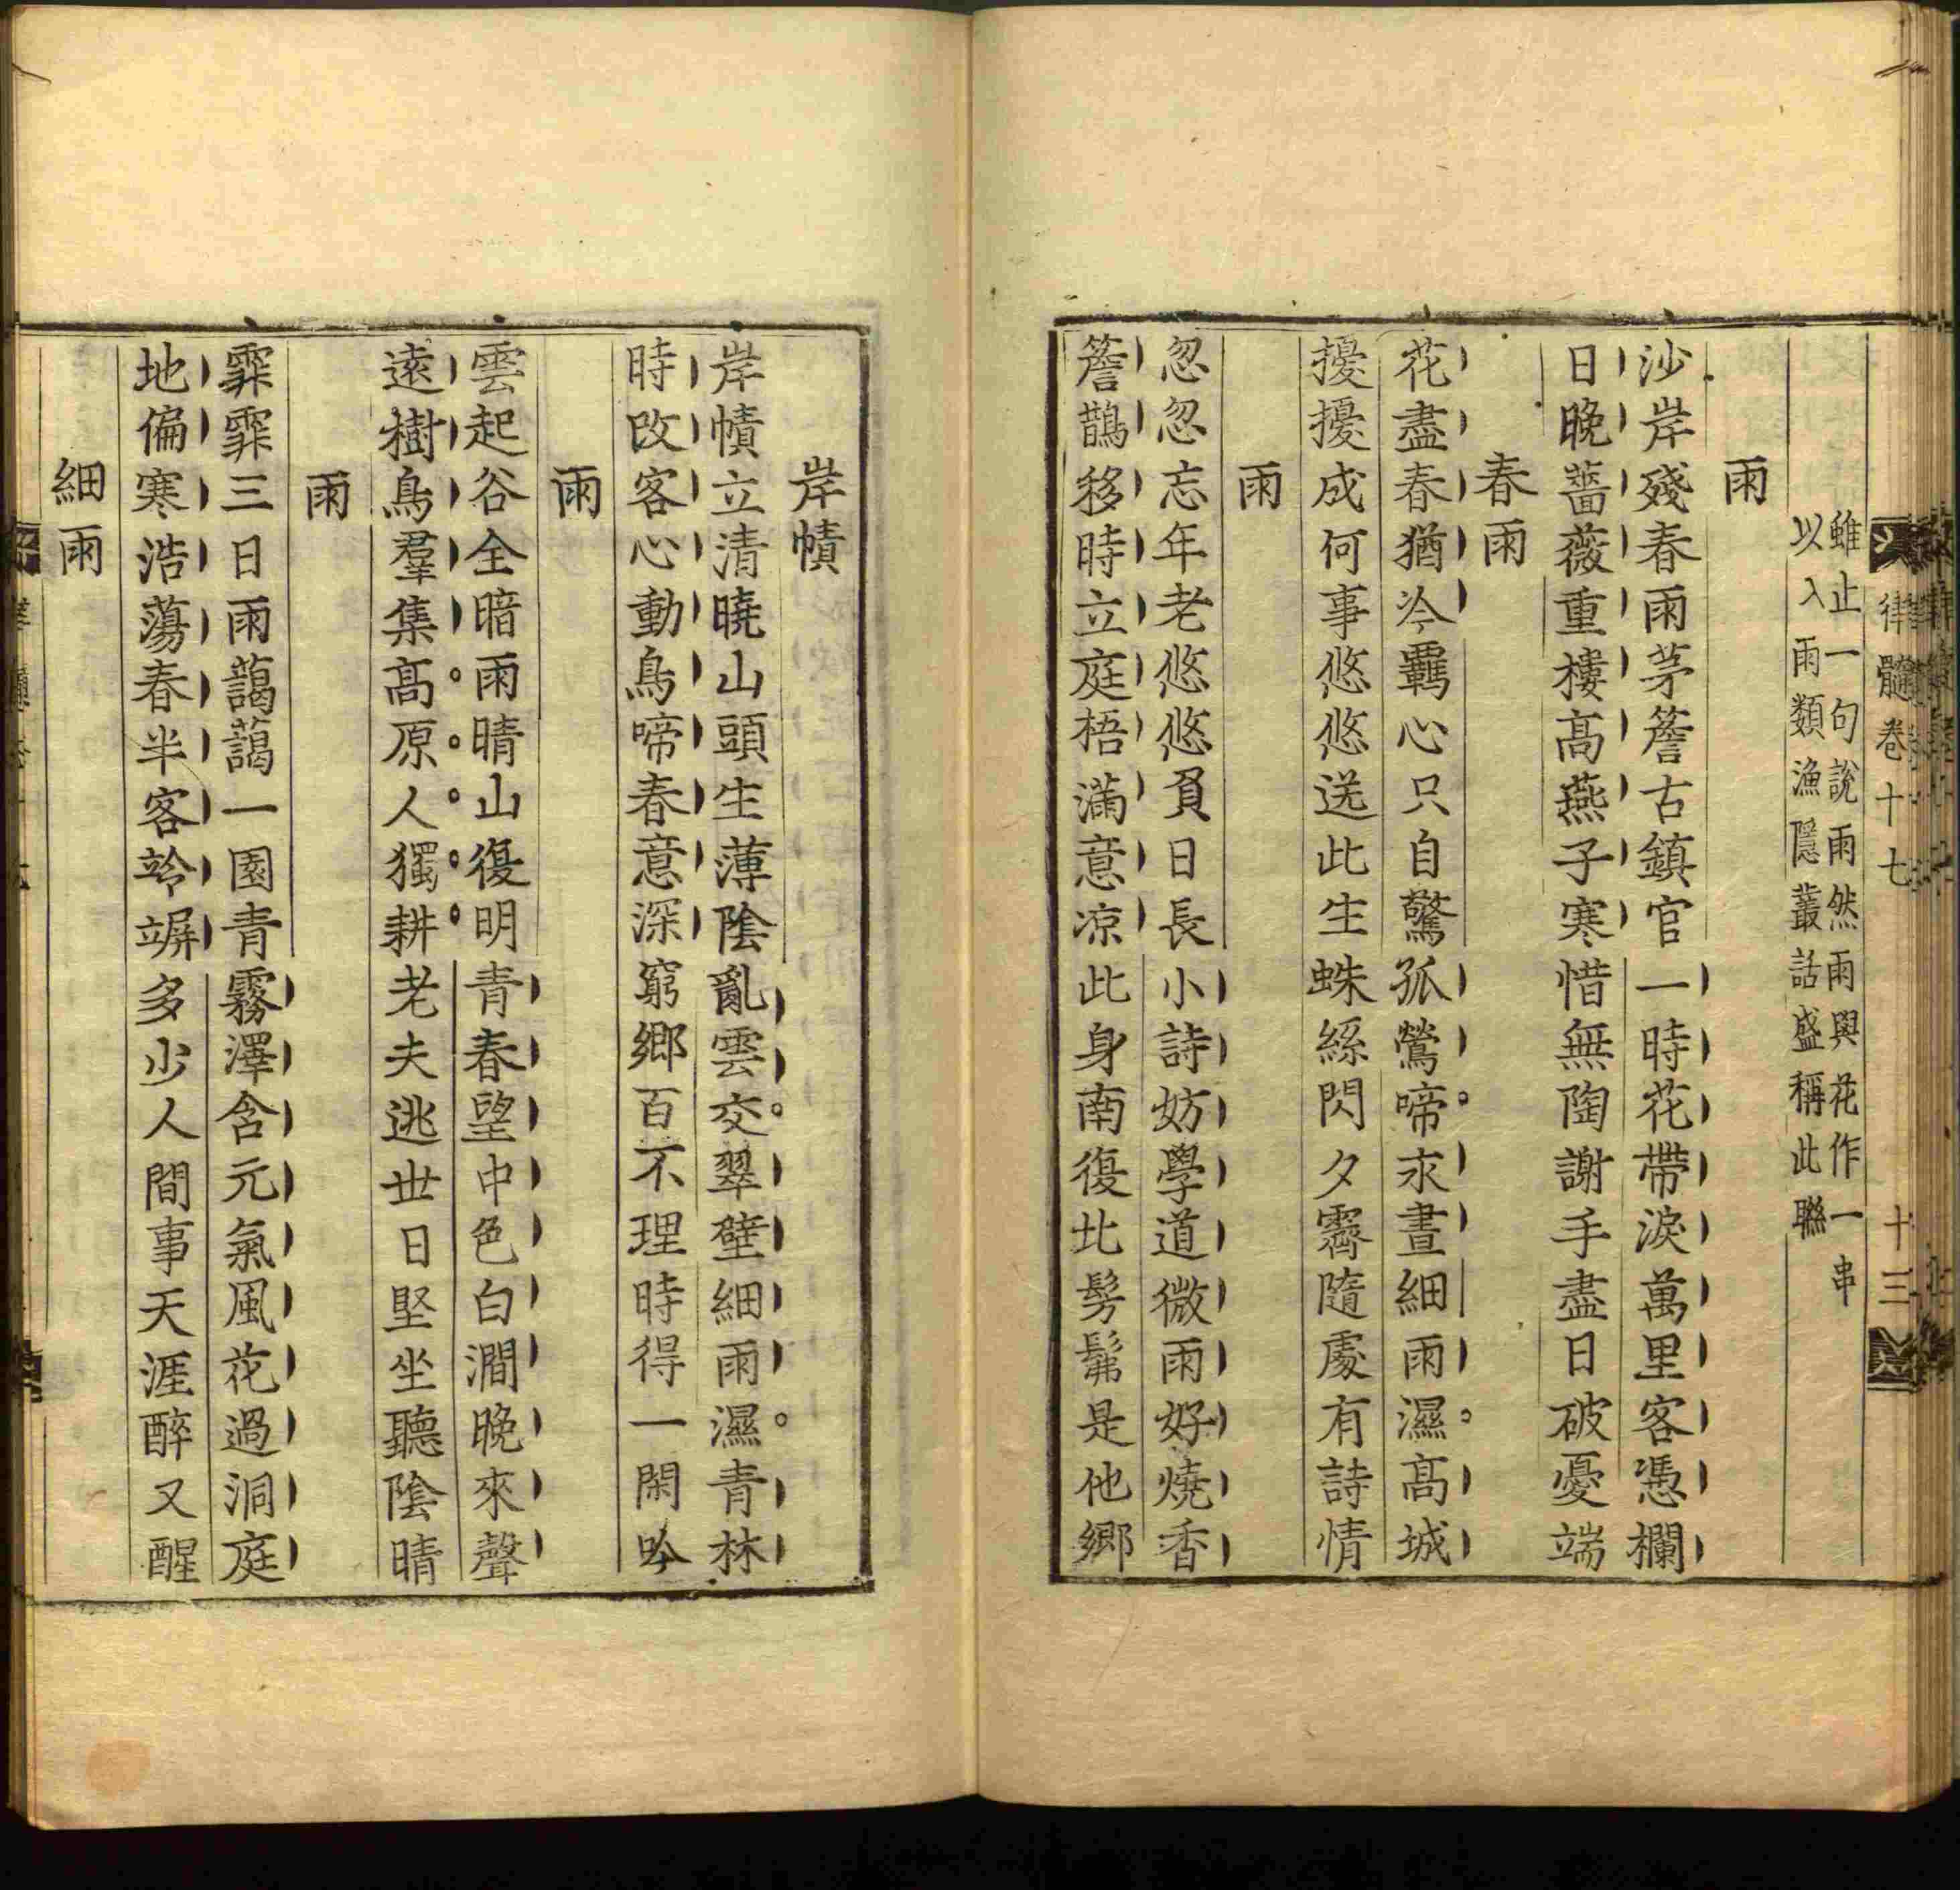 律髓卷十七 十三
雖止一句說雨然雨與花作一串
以入雨類漁隱叢話盛稱此聯
雨
沙岸殘春雨茅簷古鎮官一時花帶淚萬里客憑欄
日晚薔薇重樓高燕子寒惜無陶謝手盡日破憂端
春雨
花盡春猶冷羈心只自驚孤鶯啼永晝細雨濕高城
擾擾成何事悠悠送此生蛛絲閃夕霽隨處有詩情
雨
忽忽忘年老悠悠負日長小詩妨學道微雨好燒香
簷鵲移時立庭梧滿意凉此身南復北髣髴是他鄉
岸幘
岸幘立清曉山頭生薄陰亂雲交翠壁細雨濕青林
時改客心動鳥啼春意深窮鄉百不理時得一閑吟
雨
雲起谷全暗雨晴山復明青春望中色白澗晚來聲
遠樹鳥羣集高原人獨耕老夫逃世日堅坐聽陰晴
雨
霏霏三日雨藹藹一園青霧澤含元氣風花過洞庭
地偏寒浩蕩春半客竛竮多少人間事天涯醉又醒
細雨